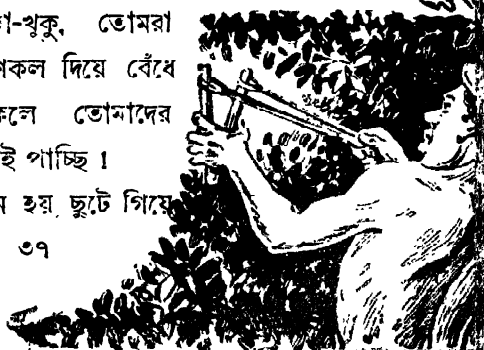 -খুকু, তোমরা
কল দিয়ে বেঁধে
তোমাদের
ই পাচ্ছি ।
হয় ছুটে গিয়ে
৩৭